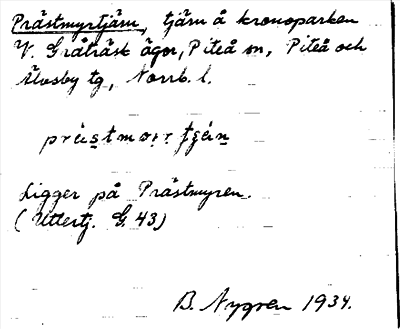 Prästmyrtjärn, tjärn å kronoparken
V. Gråträsk ägor, Piteå sn, Piteå och
Älvsby tg, Norrb. l.
prästmorr tjän
Ligger på Prästmyren.
(Uttertj. G. 43)
B. Nygren 1934.